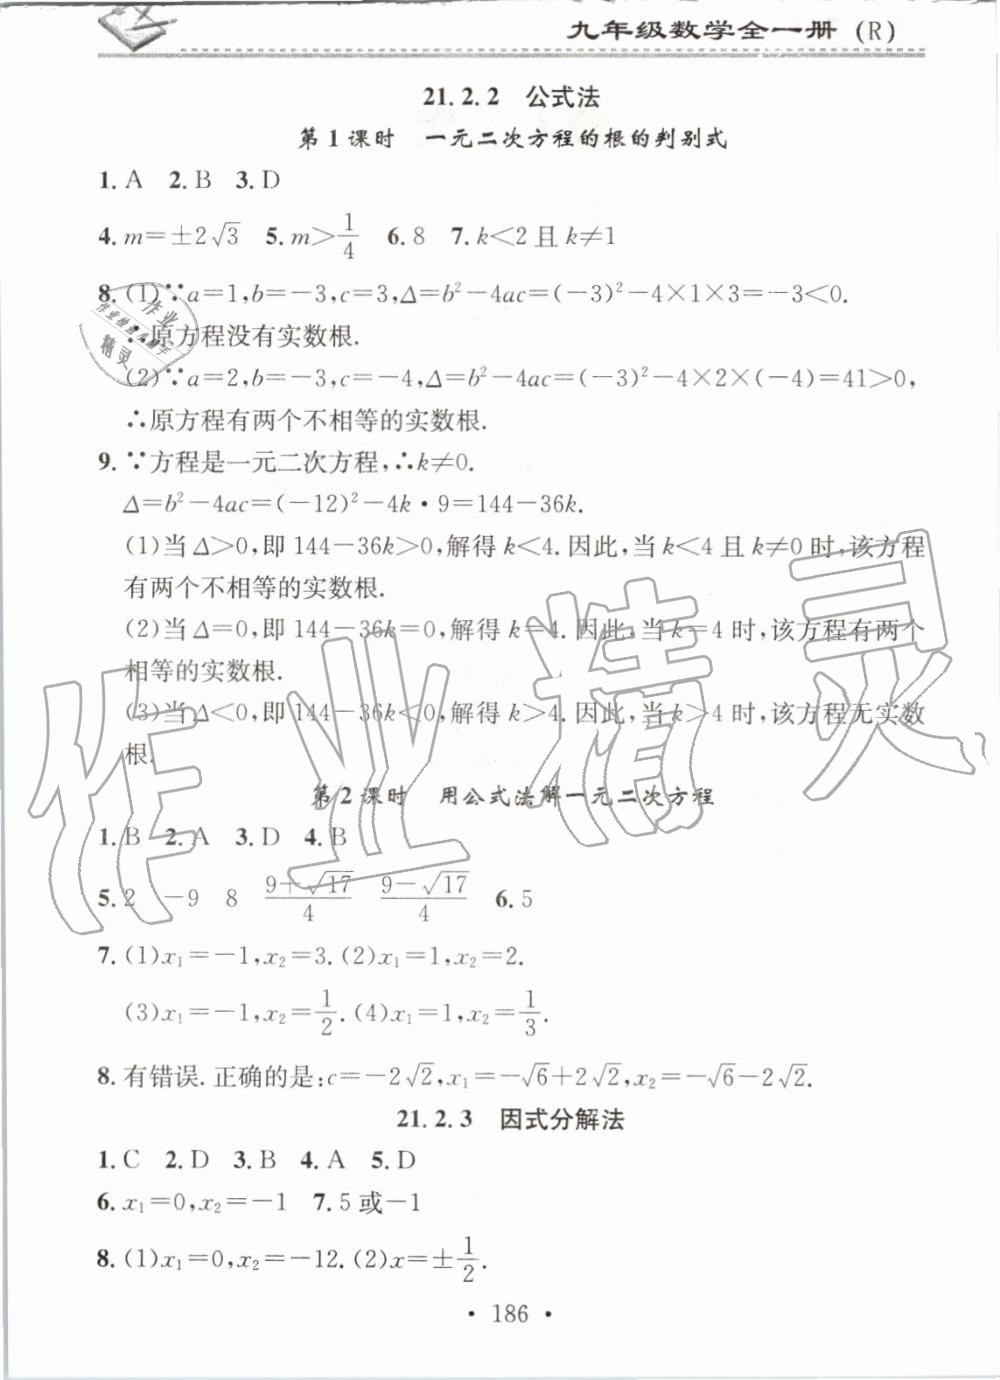 九年级数学全一册 (R)
21.2.2 公式法
第1课时 一元二次方程的根的判别式
1. A 2. B 3. D
4. m=±2√3 5. m>1/4 6. 8 7. k<2且k≠1
8. (1)∵a=1,b=-3,c=3,Δ=b²-4ac=(-3)²-4×1×3=-3<0.
∴原方程没有实数根.
(2)∵a=2,b=-3,c=-4,Δ=b²-4ac=(-3)²-4×2×(-4)=41>0,
∴原方程有两个不相等的实数根.
9. ∵方程是一元二次方程,∴k≠0.
Δ=b²-4ac=(-12)²-4k·9=144-36k.
(1)当Δ>0,即144-36k>0,解得k<4.因此,当k<4且k≠0时,该方程
有两个不相等的实数根.
(2)当Δ=0,即144-36k=0,解得k=4.因此,当k=4时,该方程有两个
相等的实数根.
(3)当Δ<0,即144-36k<0,解得k>4.因此,当k>4时,该方程无实数
根.
第2课时 用公式法解一元二次方程
1. B 2. A 3. D 4. B
5. 2 -9 8 (9+√17)/4 (9-√17)/4 6. 5
7. (1)x₁=-1,x₂=3. (2)x₁=1,x₂=2.
(3)x₁=-1,x₂=1/2. (4)x₁=1,x₂=1/3.
8. 有错误.正确的是:c=-2√2,x₁=-√6+2√2,x₂=-√6-2√2.
21.2.3 因式分解法
1. C 2. D 3. B 4. A 5. D
6. x₁=0,x₂=-1 7. 5或-1
8. (1)x₁=0,x₂=-12. (2)x=±1/2.
· 186 ·
作业精灵
作业
精灵